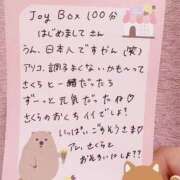 Joy Box 100分
はじめまして さん
うん、日本人ですかん(笑)
アリコ、調子よくないかも〜って
さくらと一緒だったら
ずーっと元気だったね♡
さくらのおくちイイでしょ?
いっぱいごちそうさま♡
アレ、さくらと
おそろいにしよ??